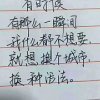 有时候
有那么一瞬间
我什么都不想要,
就想换个城市,
换种活法。